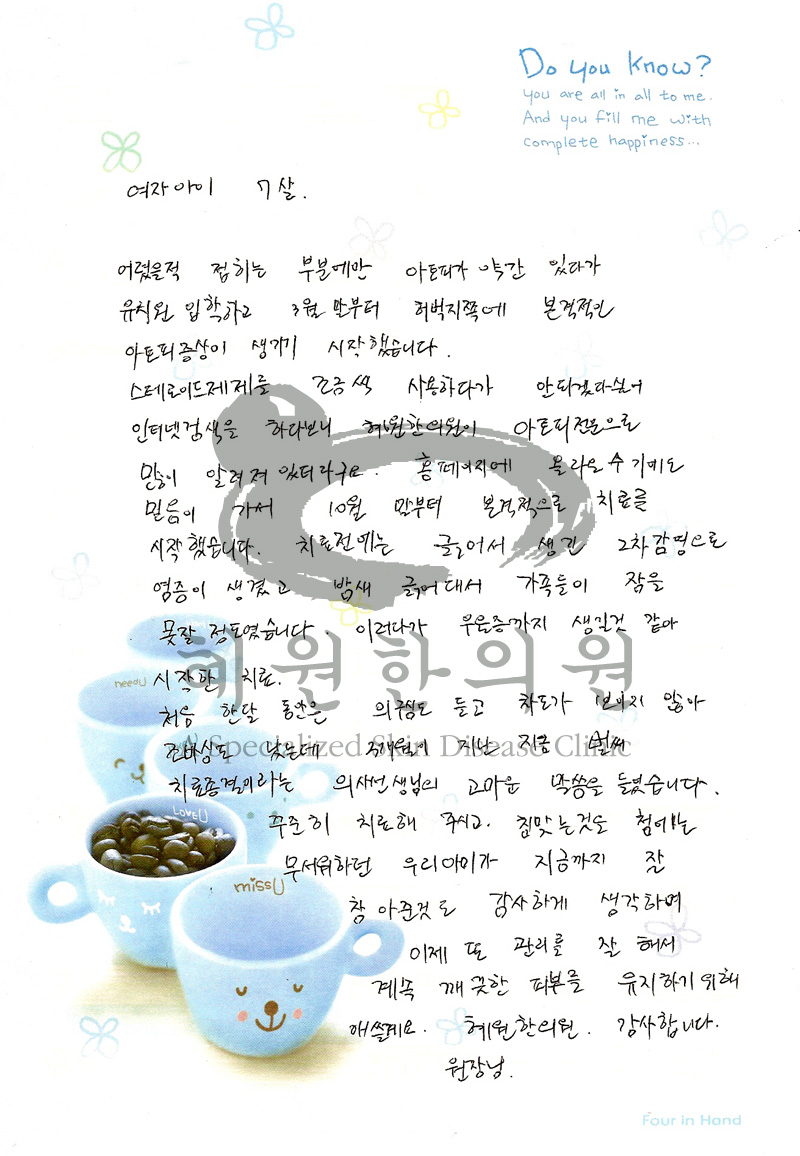 Do you know?
you are all in all to me.
And you fill me with
complete happiness...
여자아이 7살.
어렸을적 접히는 부분에만 아토피가 약간 있다가
유치원 입학하고 3월 말부터 허벅지쪽에 본격적인
아토피증상이 생기기 시작했습니다.
스테로이드제제를 조금씩 사용하다가 안되겠다싶어
인터넷검색을 하다보니 혜원한의원이 아토피전문으로
많이 알려져있더라구요. 홈페이지에 올라온 수기에도
믿음이 가서 10월 말부터 본격적으로 치료를
시작했습니다. 치료전에는 긁어서 생긴 2차감염으로
염증이 생겼고 밤새 긁어대서 가족들이 잠을
못잘 정도였습니다. 이러다가 우울증까지 생길것 같아
시작한 치료.
처음 한달 동안은 의구심도 들고 차도가 보이지 않아
조바심도 났는데 개월이 지난 지금 벌써
치료종결이라는 의사선생님의 고마운 말씀을 들었습니다.
꾸준히 치료해 주시고. 침맞는것도 첨에는
무서워하던 우리아이가 지금까지 잘
참아준것도 감사하게 생각하며
이제 또 관리를 잘 해서
계속 깨끗한 피부를 유지하기위해
애쓸게요. 혜원한의원. 감사합니다.
원장님.
혜원한의원
A Specialized Skin Disease Clinic
needU
LOVEU
missU
Four in Hand